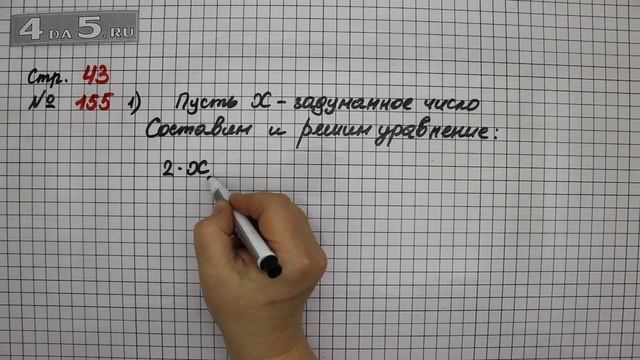 4 DA 5.RU
Стр. 43
№ 155 1) Пусть X - задуманное число
Составим и решим уравнение:
2 · X